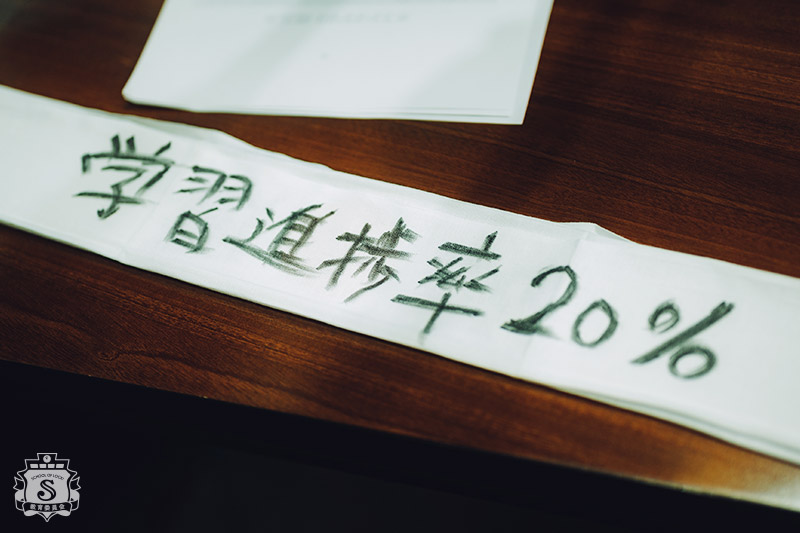 学習進捗率20%
SCHOOL OF LOCK!
S
教育委員会